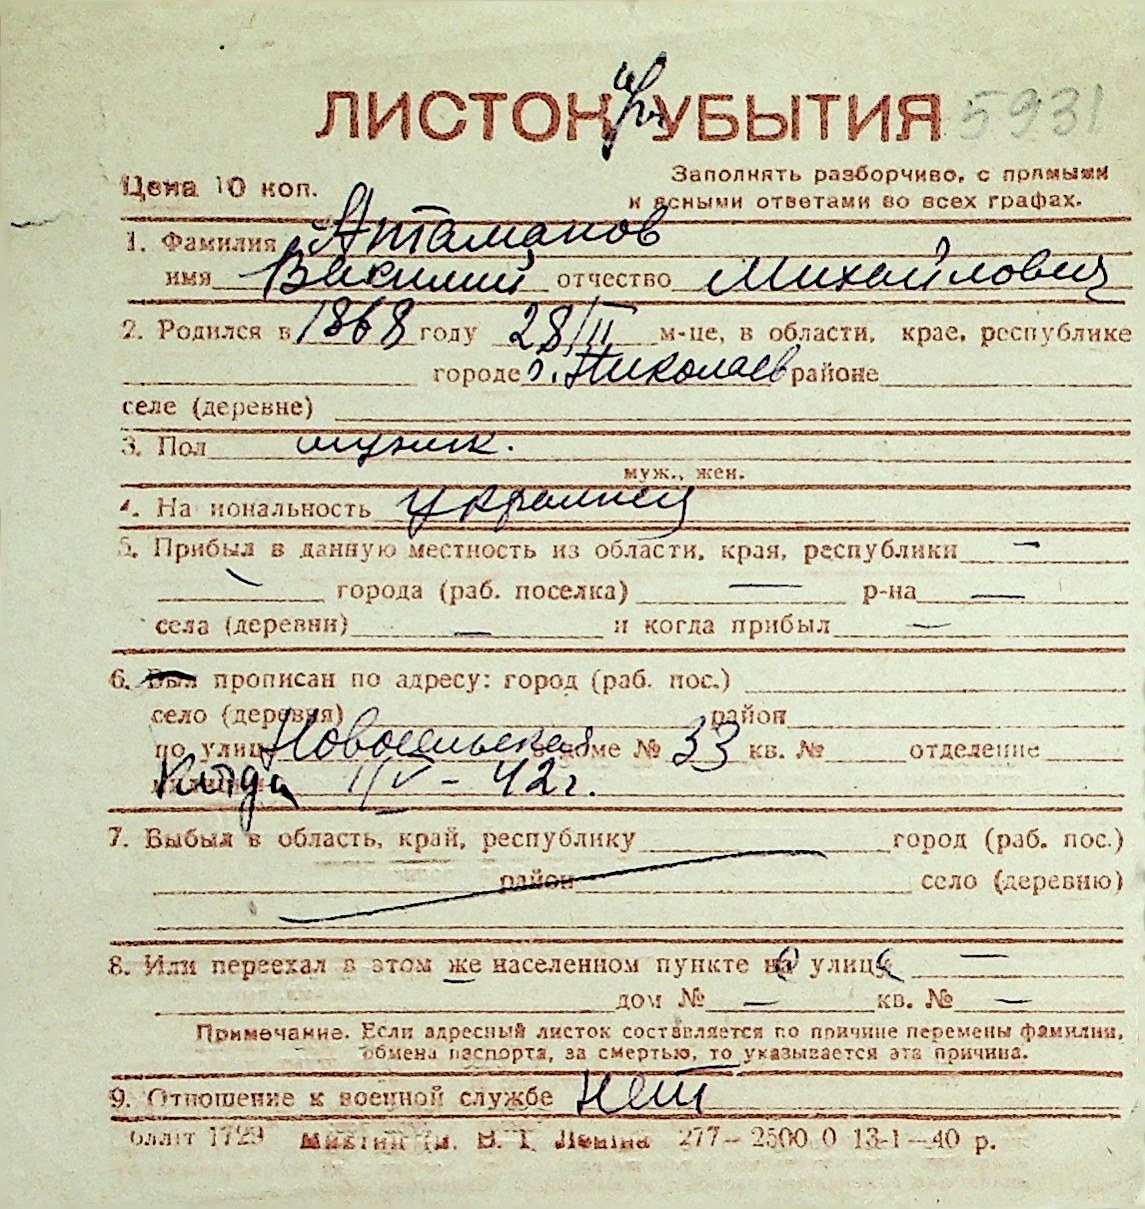 ЛИСТОК УБЫТИЯ 5931
Цена 10 коп.
Заполнять разборчиво, с прямыми
и ясными ответами во всех графах.
1. Фамилия Атаманов
имя Василий отчество Михайлович
2. Родился в 1868 году 28/II м-це, в области, крае, республике
городе г. Николаев районе
селе (деревне)
3. Пол мужск.
муж., жен.
4. На иональность украинец
5. Прибыл в данную местность из области, края, республики —
— города (раб. поселка) — р-на —
села (деревни) — и когда прибыл —
6. Был прописан по адресу: город (раб. пос.)
село (деревня) район
по улице Новосельская доме № 33 кв. № отделение
Когда 1/V - 42 г.
7. Выбыл в область, край, республику город (раб. пос.)
район село (деревню)
8. Или переехал в этом же населенном пункте на улицу —
дом № — кв. № —
Примечание. Если адресный листок составляется по причине перемены фамилии,
обмена паспорта, за смертью, то указывается эта причина.
9. Отношение к военной службе Нет
1729 В. І. Леніна 277—2500 0 13-1—40 р.